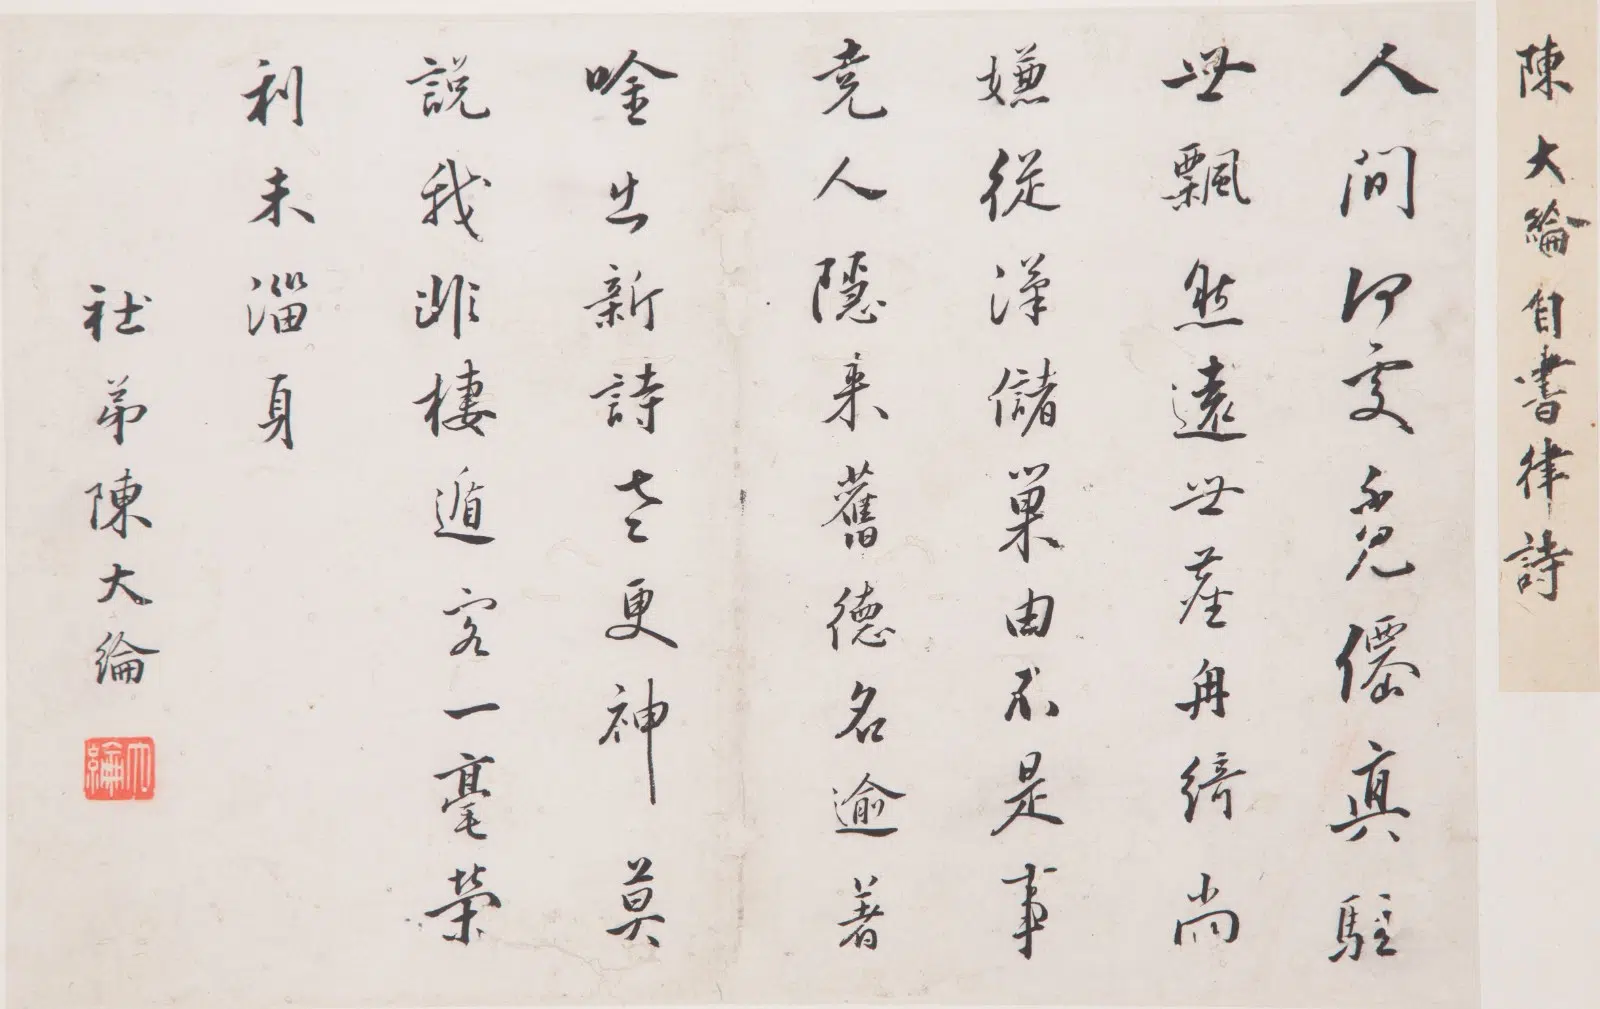 陳大綸自書律詩
人間何處覔僊真駐
世飄然遠世塵角綺尚
嫌從漢儲巢由不是事
堯人隱来舊德名逾著
唫出新詩老更神莫
說我非棲遁客一毫榮
利未淄身
社弟陳大綸
大綸